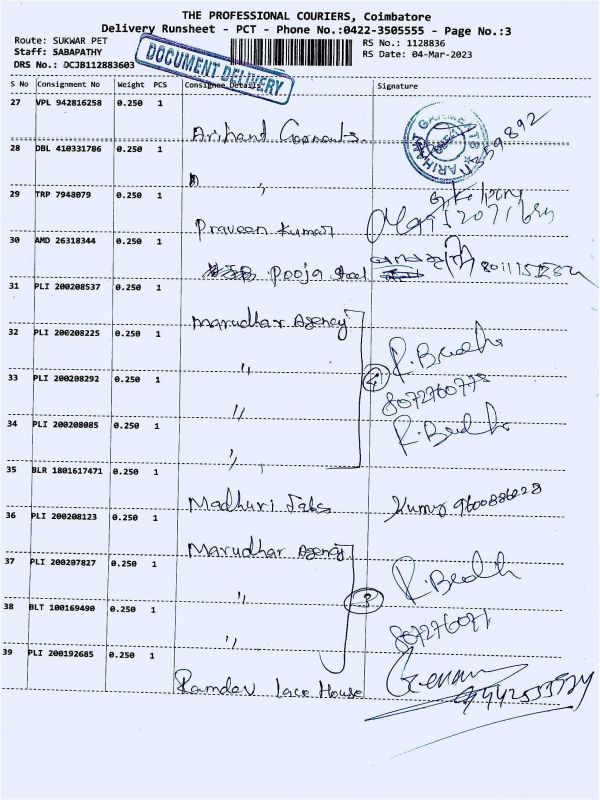 THE PROFESSIONAL COURIERS, Coimbatore
Delivery Runsheet - PCT - Phone No.:0422-3505555 - Page No.:3
Route: SUKWAR PET
RS No.: 1128836
Staff: SABAPATHY
RS Date: 04-Mar-2023
DRS No.: DCJB112883603
DOCUMENT DELIVERY
S No Consignment No Weight PCS Consignee Details Signature
27 VPL 942816258 0.250 1
Arihant ARIHANT GARMENTS
28 DBL 410331786 0.250 1
"
29 TRP 7948079 0.250 1
Praveen Kumar
30 AMD 26318344 0.250 1
Pooja
31 PLI 200208537 0.250 1
Marudhar Agency
32 PLI 200208225 0.250 1
" R.
33 PLI 200208292 0.250 1
" 4
34 PLI 200208085 0.250 1
" R.
35 BLR 1801617471 0.250 1
Madhuri Kumar
36 PLI 200208123 0.250 1
Marudhar Agency
37 PLI 200207827 0.250 1
" 3 R.
38 BLT 100169490 0.250 1
"
39 PLI 200192685 0.250 1
Ramdev Lace House